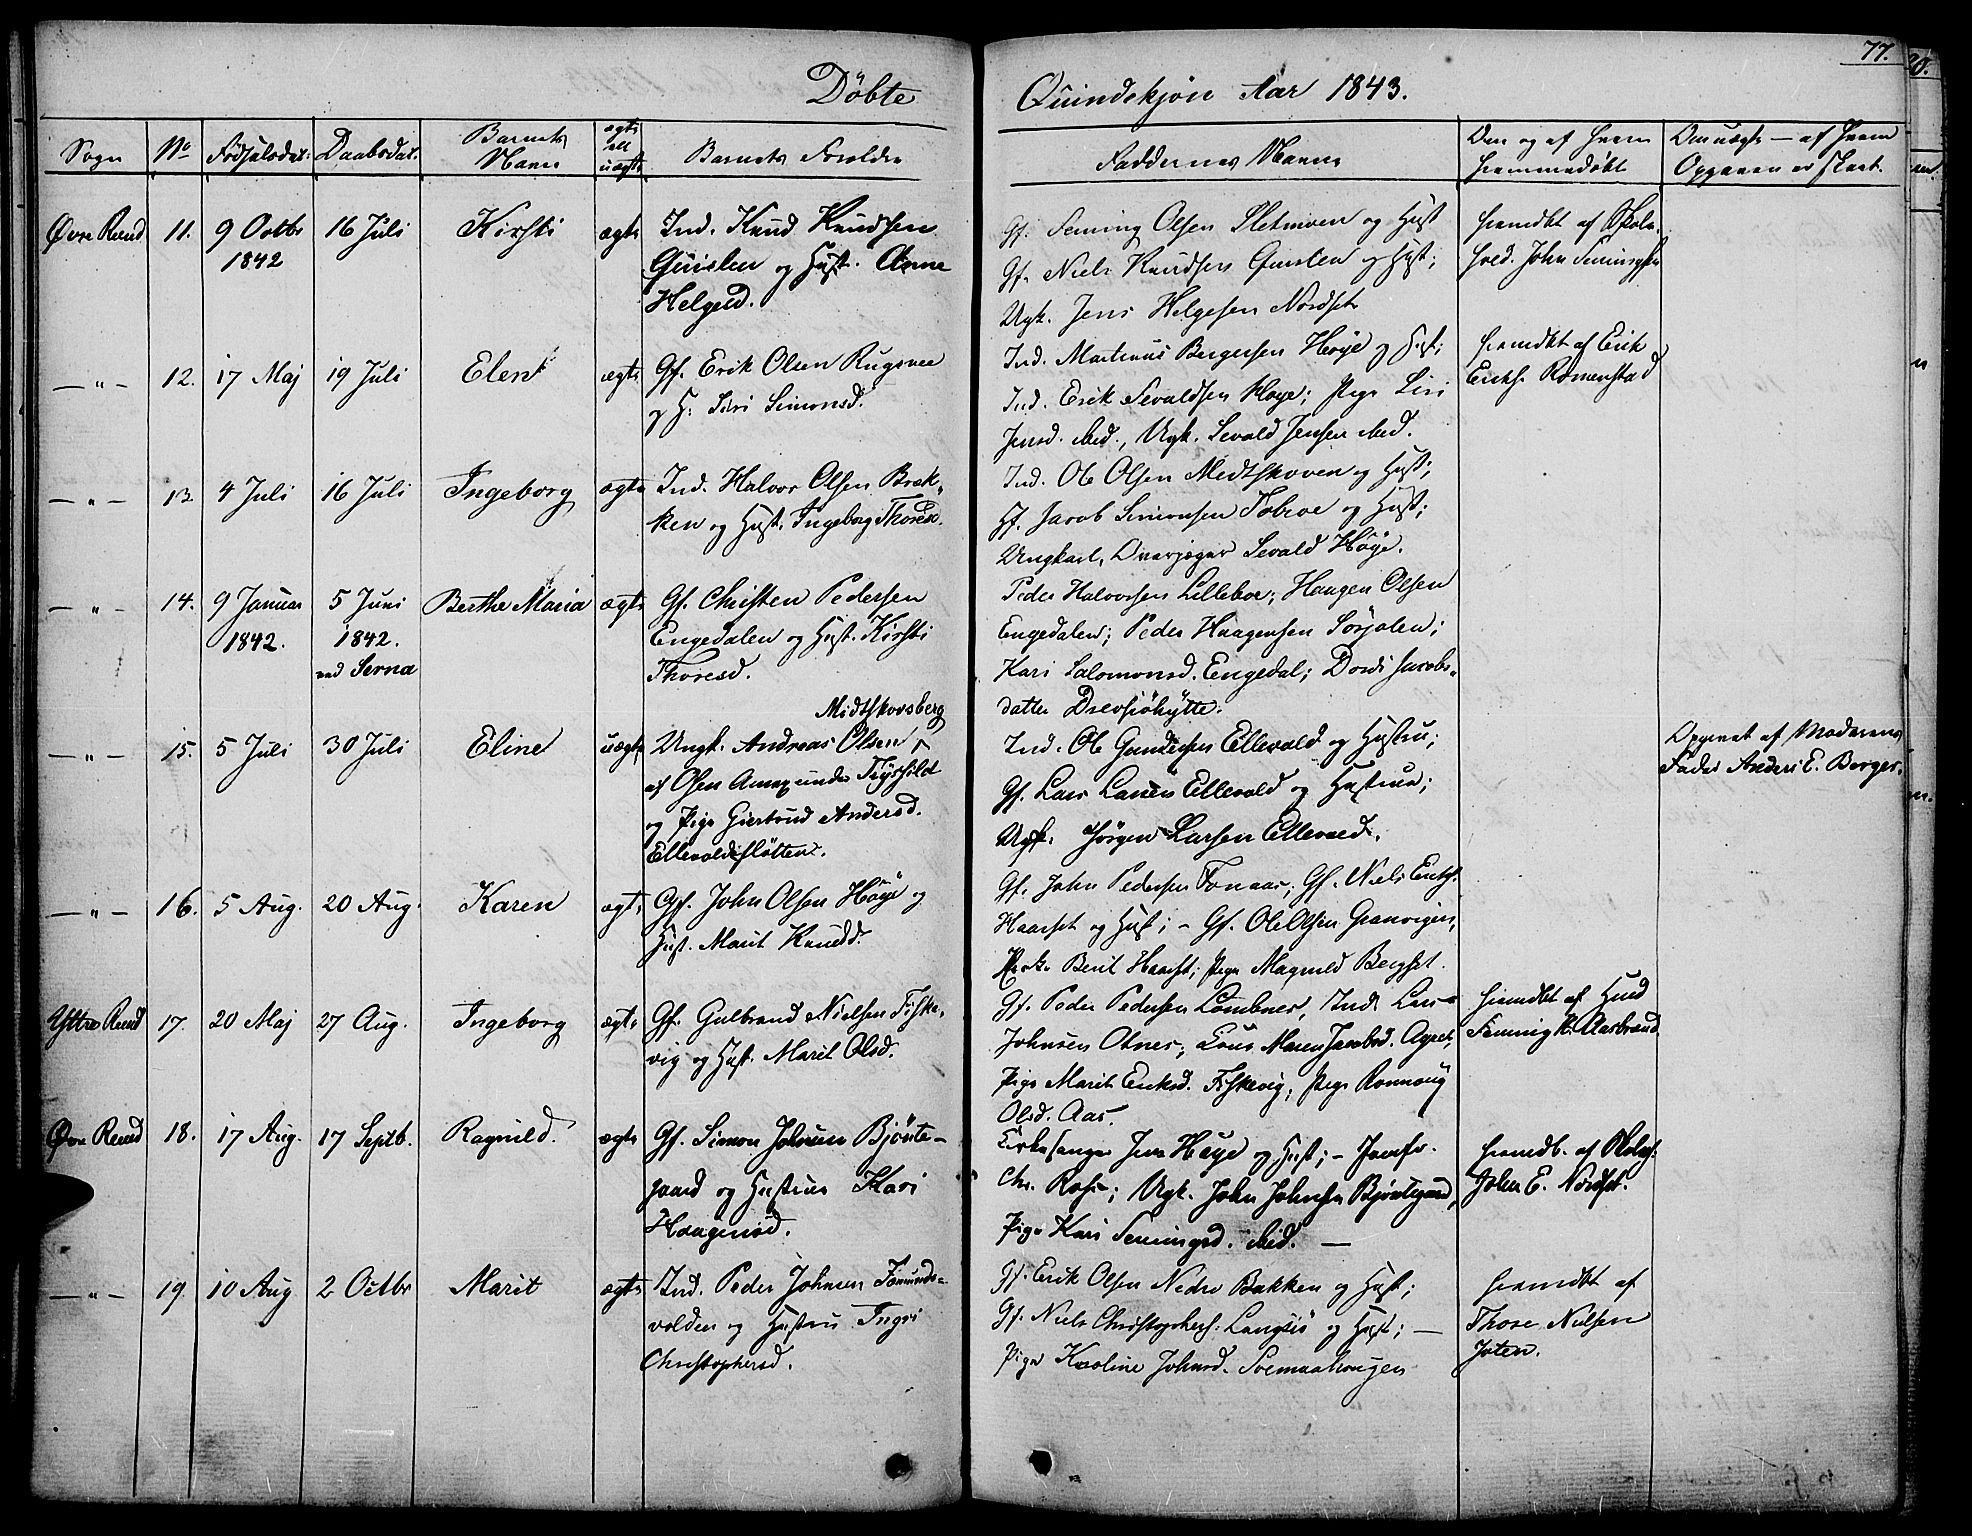 77.
Döbte Qvindekjön Aar 1843.
Sogn No Födselsdat. Daabsdat. Barnets Navn ægte ell uægte Barnets Foreldre Faddernes Navne Om og af hvem hjemmedöbt Om uægte — af hvem Opgaven er skeet.
Övre Rend 11. 9 Octbr 1842 16 Juli Kirsti ægte
Ind. Knud Knudsen
og Hust. Anne
Helgesd.
Gf. Semming Olsen Sletmoen og Hust
Gf. Niels Knudsen og Hust;
Ugk. Jens Helgesen Nordset
hjemdbt af Skole-
hold. John Semingsen
— " — 12. 17 Maj 19 Juli Elen ægte
Gf. Erik Olsen Rugsvee
og H. Siri Simonsd.
Ind. Martinus Bergersen Höye og Hust;
Ind. Erik Sevaldsen Höye; Pige Siri
Jensd. ibid., Ugk. Sevald Jensen ibid.
hjemdbt af Erik
Eriks. Romenstad
— " — 13. 4 Juli 16 Juli Ingeborg ægte
Ind. Halvor Olsen Bræk-
ken og Hust. Ingeborg Thoresd.
Ind. Ole Olsen Midtskoven og Hust;
Gf. Jacob Simonsen og Hust;
Ungkarl, Sevald Höye.
— " — 14. 9 Januar 1842. 5 Juni 1842. ved Serna Berthe Maria ægte
Gf. Christen Pedersen
Engedalen og Hust. Kirsti
Thoresd.
Peder Halvorsen Lilleboe; Haagen Olsen
Engedalen; Peder Haagensen Sörjolen;
Kari Salomonsd. Engedal; Dordi Jacobs-
datter Drevsjöhytte.
— " — 15. 5 Juli 30 Juli Eline uægte
Midtskovsberg
Ungk. Andreas Olsen
af Osen Annex under Trysild
og Pige Giertrud Andersd.
Ellevoldsfløtten.
Ind. Ole Gundersen Ellevold og Hustru;
Gf. Lars Larsen Ellevold og Hustrue;
Ugk. Jörgen Larsen Ellevold.
Opgivet af Moderens
Fader Anders E. Berger.
— " — 16. 5 Aug. 20 Aug. Karen ægte
Gf. John Olsen Höye og
Hust. Marit Knudsd.
Gf. John Pedersen Fonaas; Gf. Niels Eriks.
Haarset og Hust; - Gf. Ole Olsen Granvigen,
Berit Haarset; Pige Magnild Bergset.
Yttre Rend 17. 20 Maj 27 Aug. Ingeborg ægte
Gf. Gulbrand Nielsen Fiske-
vig og Hust. Marit Olsd.
Gf. Peder Pedersen Lombnes, Ind. Lars
Johnsen Otnes; Maren Jacobsd. Agret,
Pige Marit Eriksd. Fiskevig; Pige Ronnoug
Olsd. Aas.
hjemdbt af Husd
Semming K. Aasbrend
Övre Rend 18. 17 Aug. 17 Septb. Ragnild. ægte
Gf. Simon Johnsen Bjönte-
gaard og Hustrue Kari
Haagensd.
Kirkesanger Jens Höye og Hust; - Jomfr.
Chr. ; Ugk. John Johnsen Bjöntegaard,
Pige Kari Semingsd. ibid. —
hjemdb. af Skoleh.
John E. Nordset.
— " — 19. 10 Aug 2 Octbr Marit ægte
Ind. Peder Johnsen Femunds-
volden og Hustru Ingri
Christophersd.
Gf. Erik Olsen Nedre Bakken og Hust;
Gf. Niels Christophers. Langsiö og Hust; —
Pige Karoline Johnsd. Svemaahaugen
hjemdbt af
Thore Nielsen
Joten.